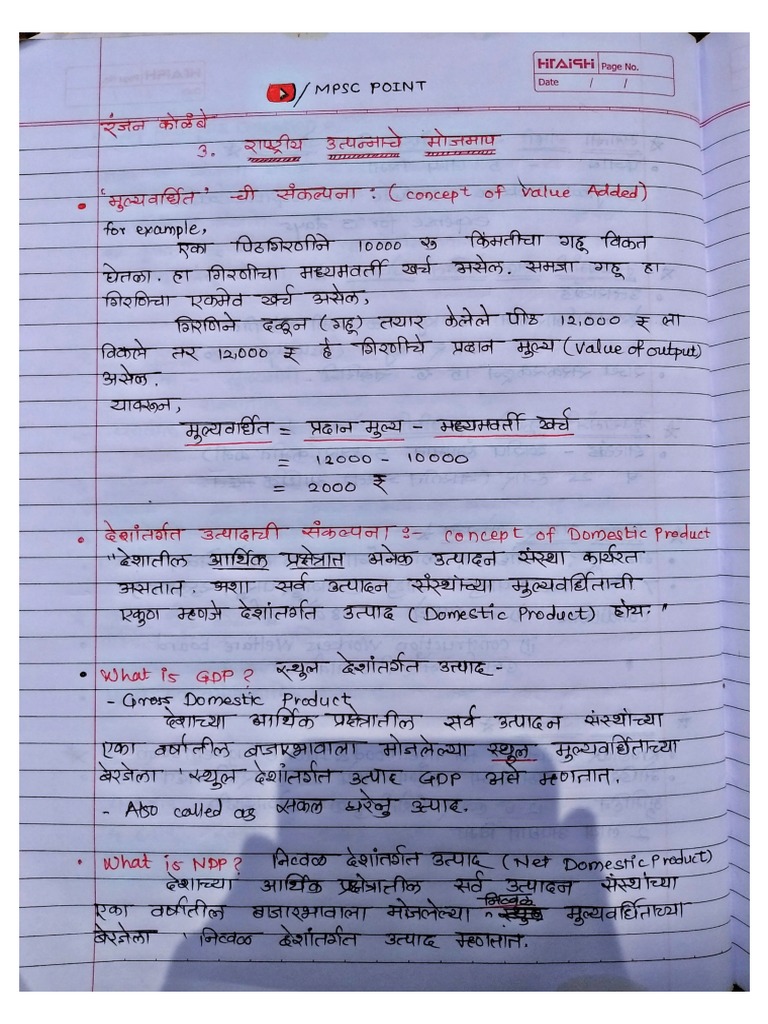 HITAISHI Page No.
Date / /
/ MPSC POINT
रंजन कोळंबे
3. राष्ट्रीय उत्पन्नाचे मोजमाप
• 'मुल्यवर्धित' -ची संकल्पना : (concept of Value Added)
for example,
एका पिठगिरणीने 10000 रु किंमतीचा गहू विकत
घेतला. हा गिरणीचा मध्यमवर्ती खर्च असेल. समजा गहू हा
गिरणिचा एकमेव खर्च असेल,
गिरणिने दळून (गहू) तयार केलेले पीठ 12,000 ₹ ला
विकले तर 12,000 ₹ हे गिरणीचे प्रदान मुल्य (Value of output)
असेल.
यावरून,
मुल्यवर्धित = प्रदान मुल्य - मध्यमवर्ती खर्च
= 12000 - 10000
= 2000 ₹
• देशांतर्गत उत्पादाची संकल्पना :- concept of Domestic Product
"देशातील आर्थिक प्रक्षेत्रात अनेक उत्पादन संस्था कार्यरत
असतात. अशा सर्व उत्पादन संस्थांच्या मुल्यवर्धिताची
एकुण म्हणजे देशांतर्गत उत्पाद (Domestic Product) होय."
• What is GDP? स्थुल देशांतर्गत उत्पाद -
- Gross Domestic Product
देशाच्या आर्थिक प्रक्षेत्रातील सर्व उत्पादन संस्थांच्या
एका वर्षातील बाजारभावाला मोजलेल्या स्थुल मुल्यवर्धिताच्या
बेरजेला 'स्थुल देशांतर्गत उत्पाद GDP असे म्हणतात.
- Also called as सकल घरेलु उत्पाद.
• What is NDP? निव्वळ देशांतर्गत उत्पाद (Net Domestic Product)
देशाच्या आर्थिक प्रक्षेत्रातील सर्व उत्पादन संस्थांच्या
एका वर्षातील बाजारभावाला मोजलेल्या निव्वळ मुल्यवर्धिताच्या
बेरजेला 'निव्वळ देशांतर्गत उत्पाद म्हणतात.